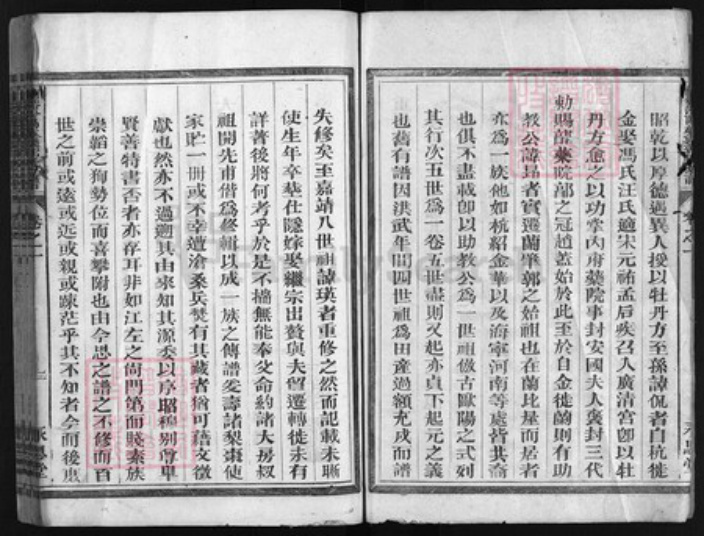 昭乾以厚德遇異人授以牡丹方至孫諱侃者自杭徙
金娶馮氏汪氏適宋元祐孟后疾召入廣清宮卽以牡
丹方愈之以功掌內府藥院事封安國夫人褒封三代
勅賜薛藥院郭之冠趙蓋始於此至於自金徙蘭則有助
教公諒者實遷蘭肇郭之始祖也在蘭比屋而居者
亦爲一族他如杭紹金華以及海寧河南等處皆其裔
也俱不盡載卽以助教公爲一世祖倣古歐陽之式列
其行次五世爲一卷五世盡則又起亦貞下起元之義
也舊有譜因洪武年間四世祖爲田產過額充戍而譜
失修矣至嘉靖八世祖諱瑛者重修之然而記載未晰
使生年卒葬仕隱嫁娶繼宗出贅與夫留遷轉徙未有
詳著後將何考乎於是不揣無能奉父命約諸大房叔
祖開先甫偕爲修輯以成一族之傳譜爰壽諸梨棗使
家貯一冊或不幸遭滄桑兵燹有其藏者猶可藉文徵
獻也然亦不過遡其由來知其源委以序昭穆別尊卑
賢善特書否者亦存耳非如江左之尙門第而賤素族
崇韜之狥勢位而喜攀附也由今思之譜之不修而百
世之前或遠或近或親或疎茫乎其不知者今而後
卷之一